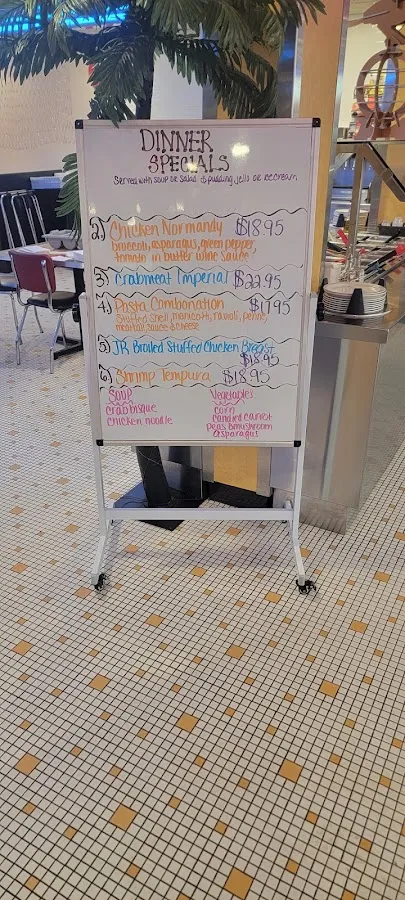 DINNER
SPECIALS
Served with soup or salad & pudding, jello or ice cream
2) Chicken Normandy $18.95
broccoli, asparagus, green pepper,
tomato in butter wine sauce
3) Crabmeat Imperial $22.95
4) Pasta Combonation $17.95
Stuffed Shell, manicotti, ravioli, penne,
meatball, sauce & cheese
5) JR Broiled Stuffed Chicken Breast
$18.95
6) Shrimp Tempura $18.95
Soup
crab bisque
chicken noodle
Vegetables
corn
candied carrot
peas & mushroom
asparagus